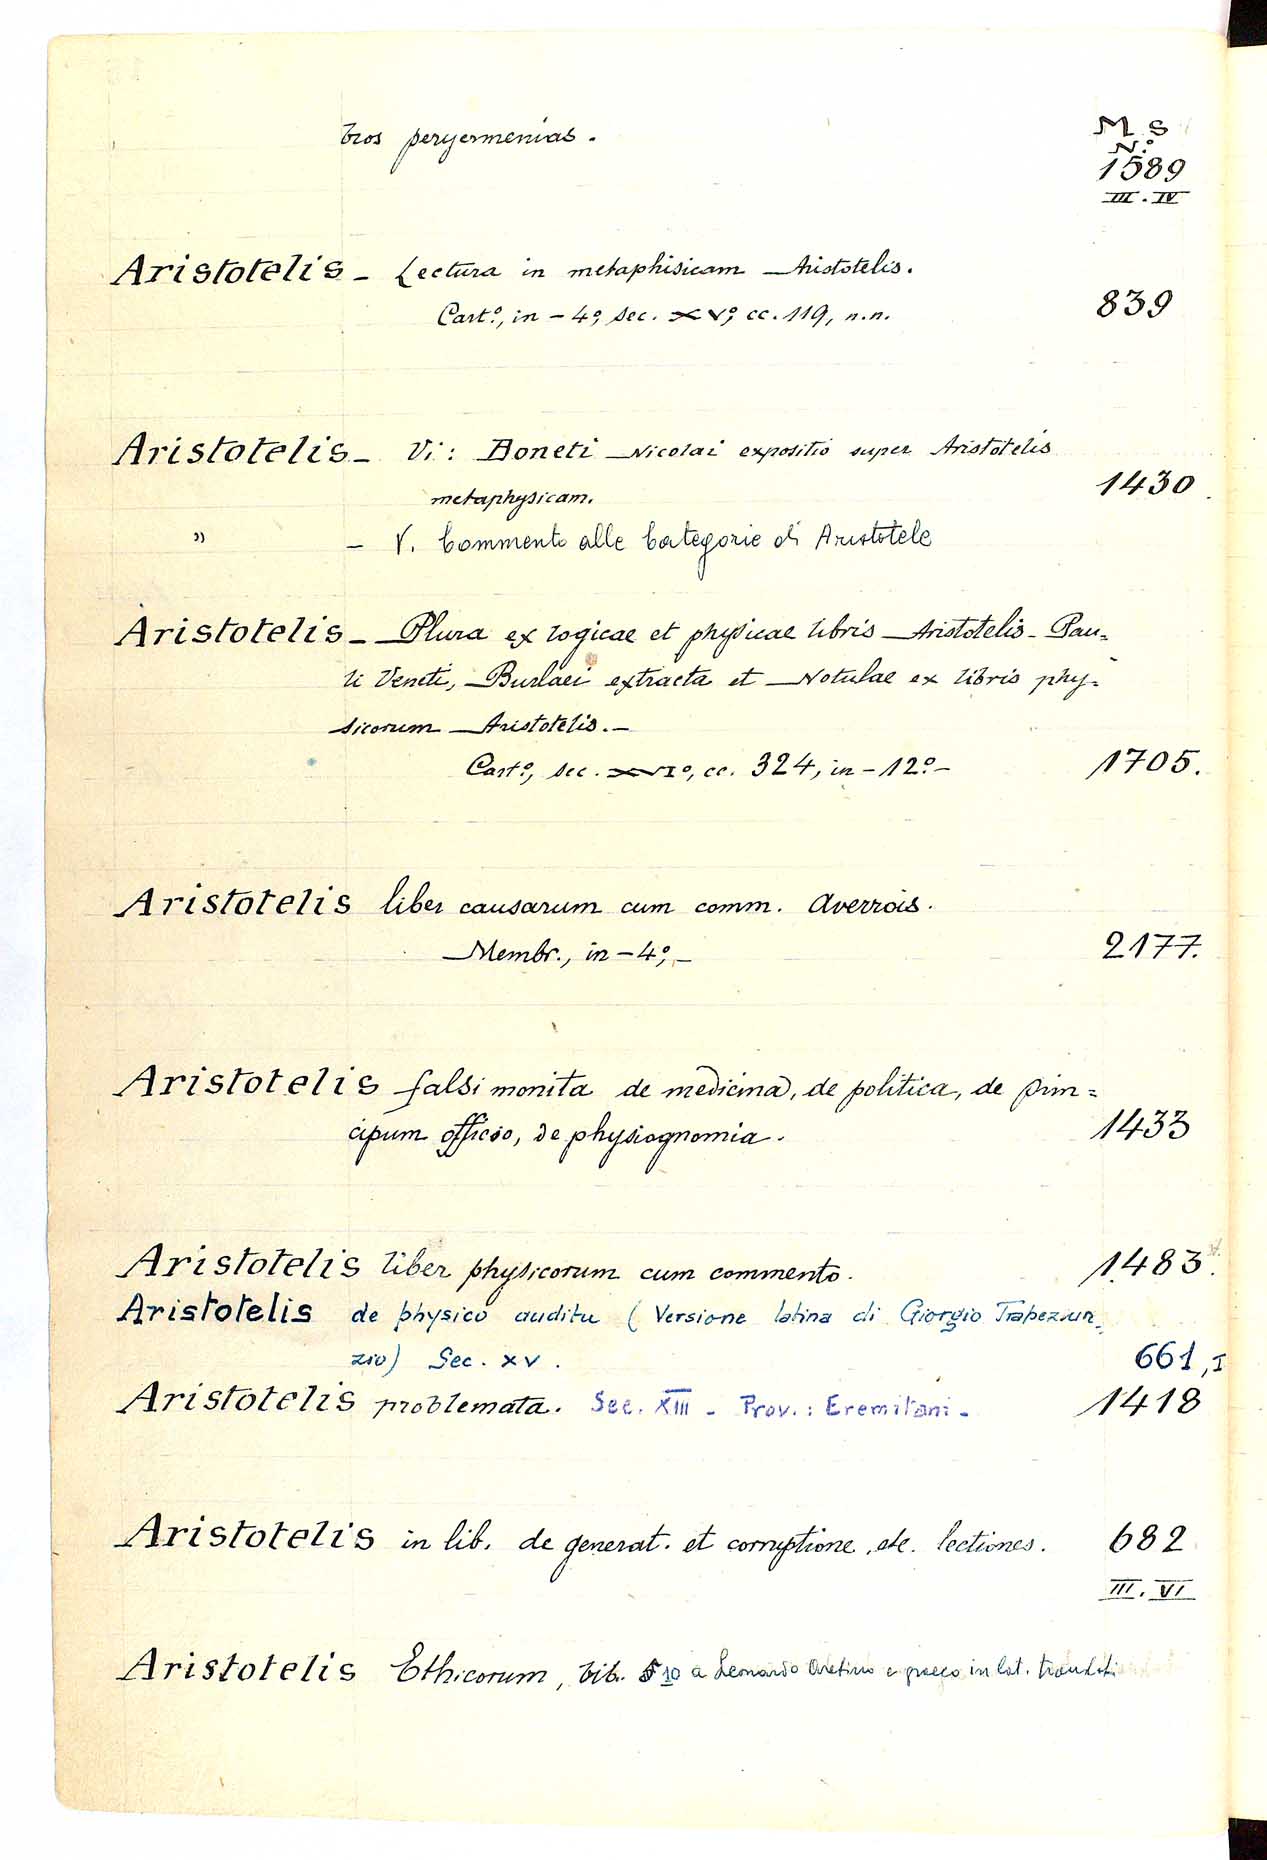 bros peryermenias.
M S
N.º
1589
III. IV
Aristotelis - Lectura in metaphisicam Aristotelis.
Cart.º, in-4º, sec. XVº, cc. 119, n.n.
839
Aristotelis - Vi: Boneti Nicolai expositio super Aristotelis
metaphysicam.
1430
" - V. Commento alle Categorie di Aristotele
Aristotelis - Plura ex logicae et physicae libris Aristotelis - Pau=
li Veneti, Burlaei extracta et Notulae ex libris phy=
sicorum Aristotelis. -
Cart.º, sec. XVIº, cc. 324, in-12º -
1705.
Aristotelis liber causarum cum comm. Averrois.
Membr., in-4º, -
2177.
Aristotelis falsi monita de medicina, de politica, de prin=
cipum officio, de physiognomia.
1433
Aristotelis liber physicorum cum commento.
1483.
Aristotelis de physico auditu (Versione latina di Giorgio Trapezun=
zio) Sec. XV.
661, I
Aristotelis problemata. Sec. XIII - Prov.: Eremitani -
1418
Aristotelis in lib. de generat. et corruptione, etc. lectiones.
682
III. VI
Aristotelis Ethicorum, lib. 10 a Leonardo Aretino e graeco in lat. translati